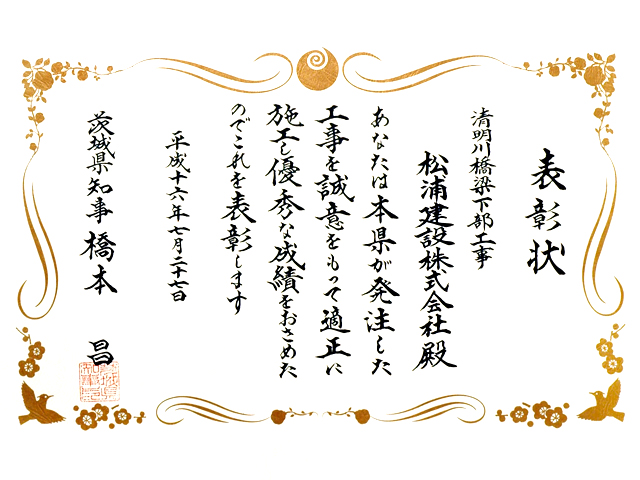 表彰状
清明川橋梁下部工事
松浦建設株式会社殿
あなたは本県が発注した
工事を誠意をもって適正に
施工し優秀な成績をおさめた
のでこれを表彰します
平成十六年七月二十七日
茨城県知事 橋本 昌